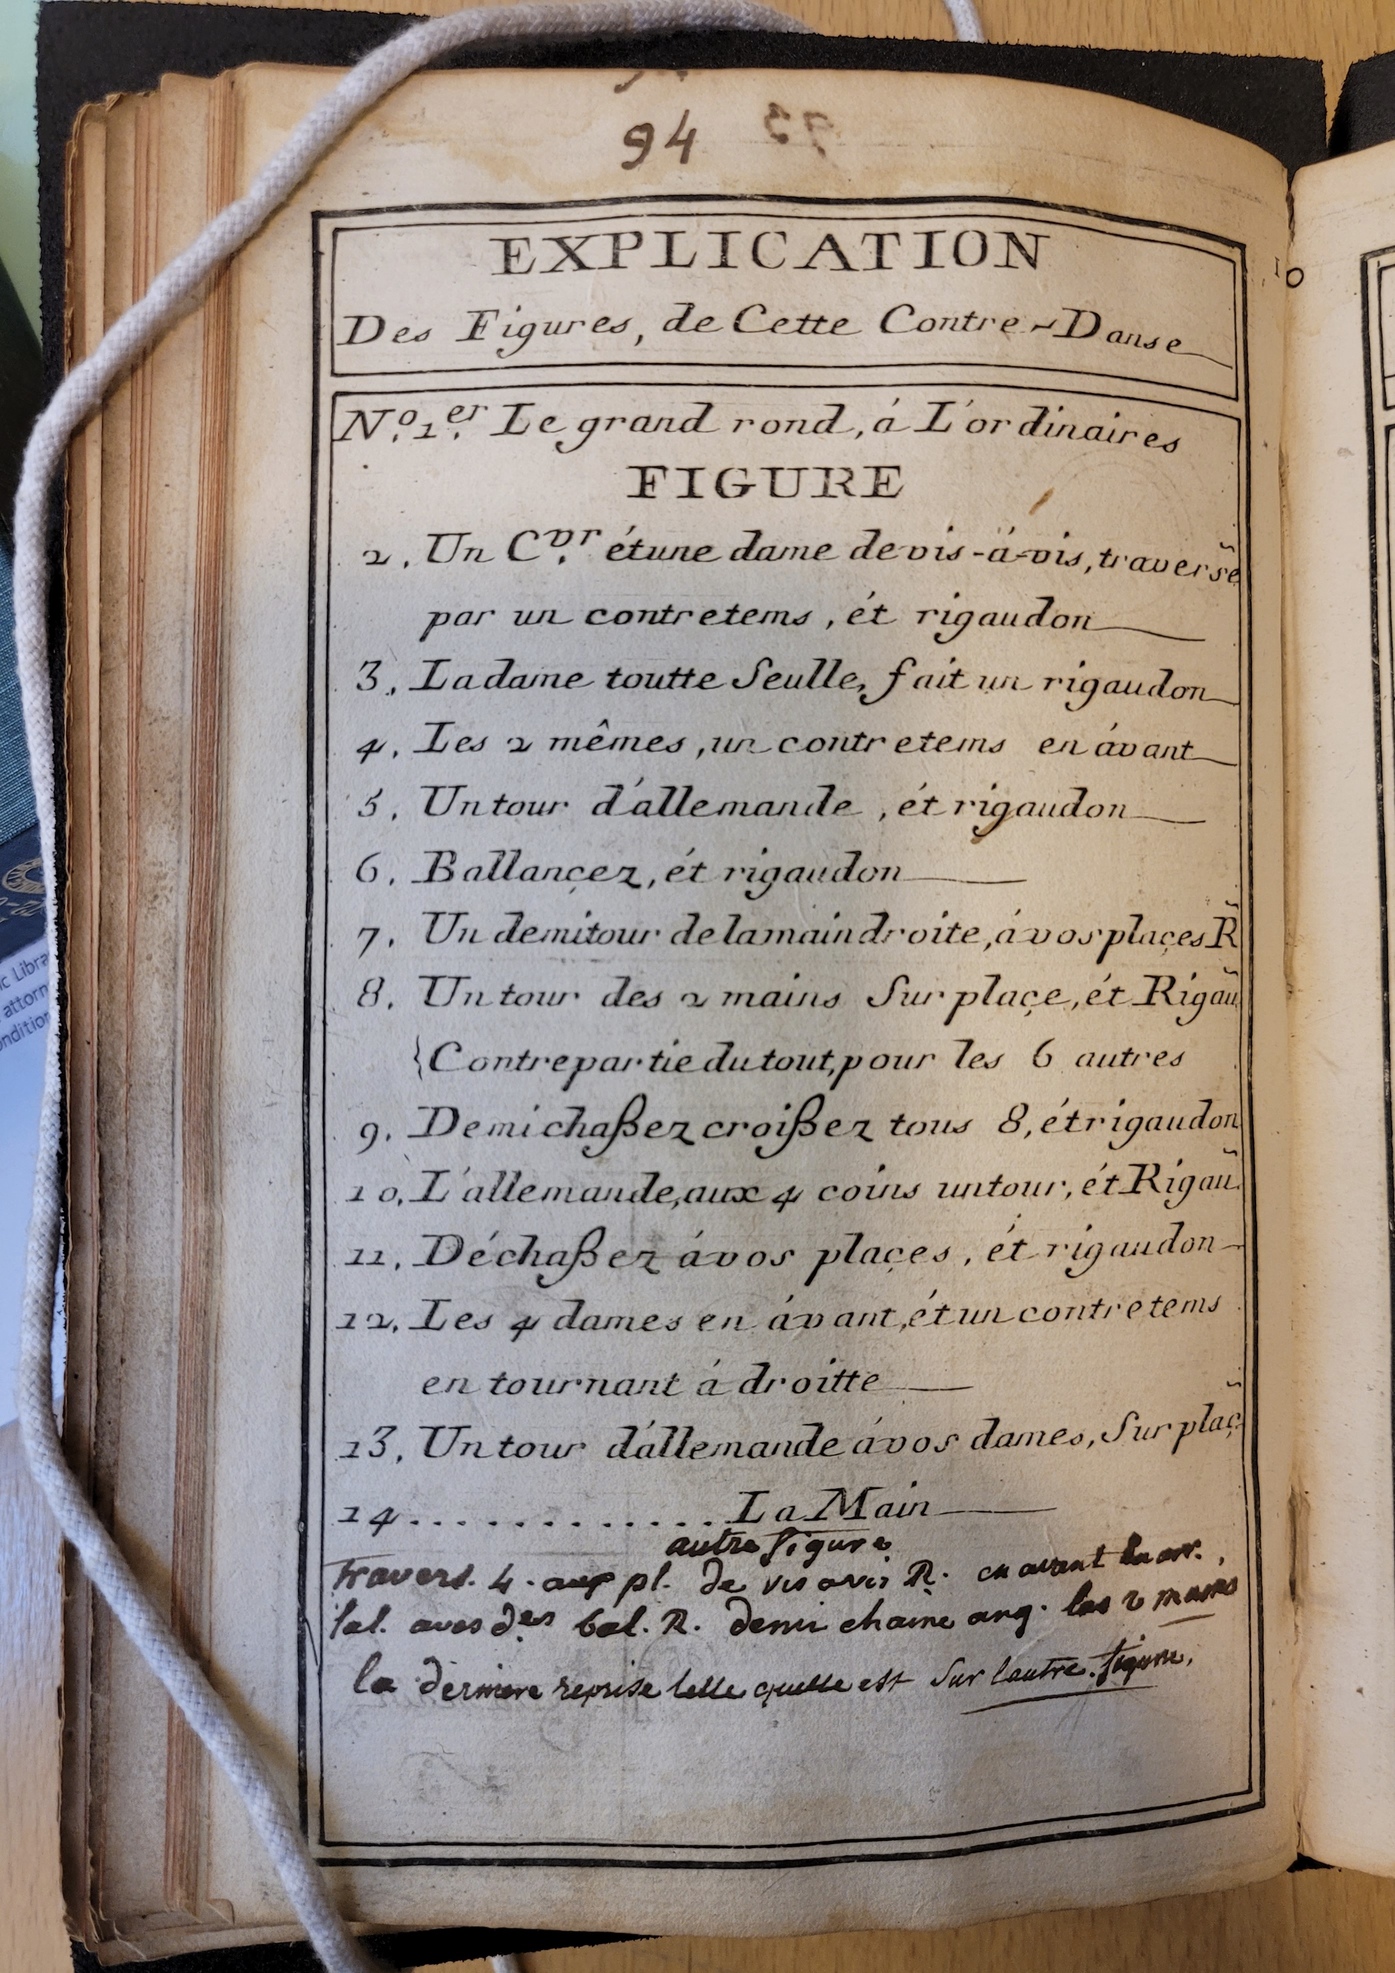 94
EXPLICATION
Des Figures, de Cette Contre-Danse
N.º 1.er Le grand rond, á L'ordinaires
FIGURE
2. Un C.vr étune dame devis-à-vis, traverse
par un contretems, ét rigaudon
3. Ladame toutte Seulle, fait un rigaudon
4. Les 2 mêmes, un contretems en ávant
5. Untour d'allemande, ét rigaudon
6. Ballançez, ét rigaudon
7. Un demitour delamaindroite, ávosplaçes R̃
8. Untour des 2 mains Sur plaçe, ét Rigau̴
{Contrepartiedutout, pour les 6 autres
9. Demichaßez croißez tous 8, étrigaudon
10. L'allemande, aux 4 coins untour, ét Rigau̴
11. Déchaßez ávos plaçes, ét rigaudon
12. Les 4 dames en ávant, étun contretems
en tournant á droitte
13. Untour d'allemande ávos dames, Sur plaç̃
14............La Main
autre figure
travers. 4. aux pl. de vis avis R. en avant
bal. R. demi chaine ang. les 2 mains
la derniere reprise telle quelle est Sur lautre figure.